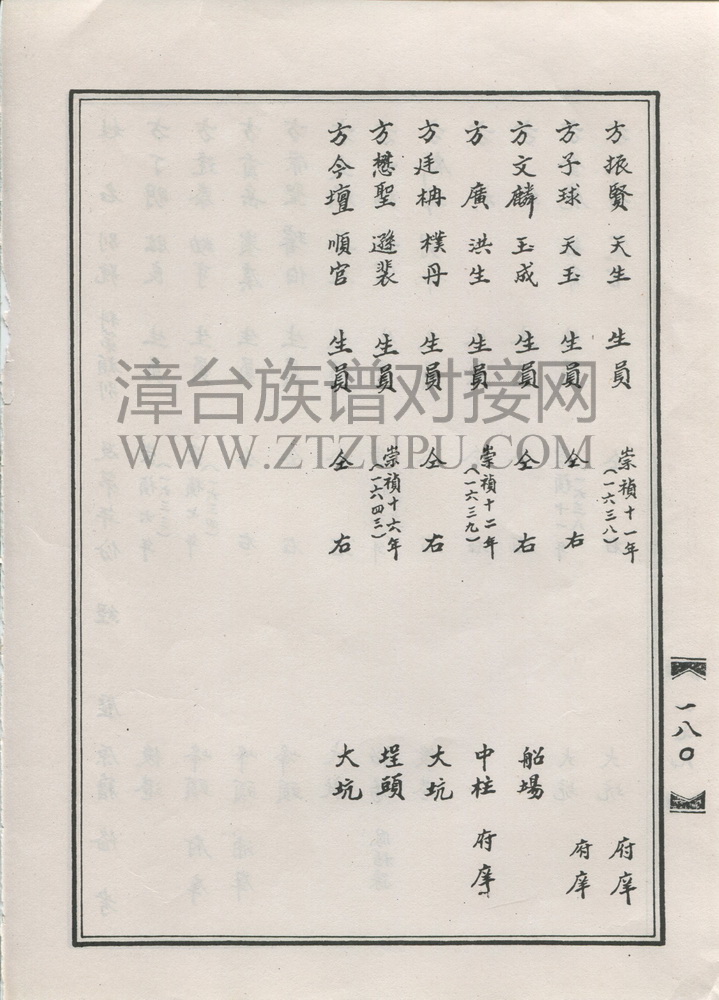 方振賢 天生 生員 崇禎十一年（一六三八） 府庠
方子球 天玉 生員 仝右 府庠
方文麟 玉成 生員 仝右 船場
方廣 洪生 生員 崇禎十二年（一六三九） 中柱 府庠
方廷柟 樸丹 生員 仝右 大坑
方懋聖 遜裴 生員 崇禎十六年（一六四三） 埕頭
方今壇 順官 生員 仝右 大坑
一八〇
漳台族谱对接网
WWW.ZTZUPU.COM